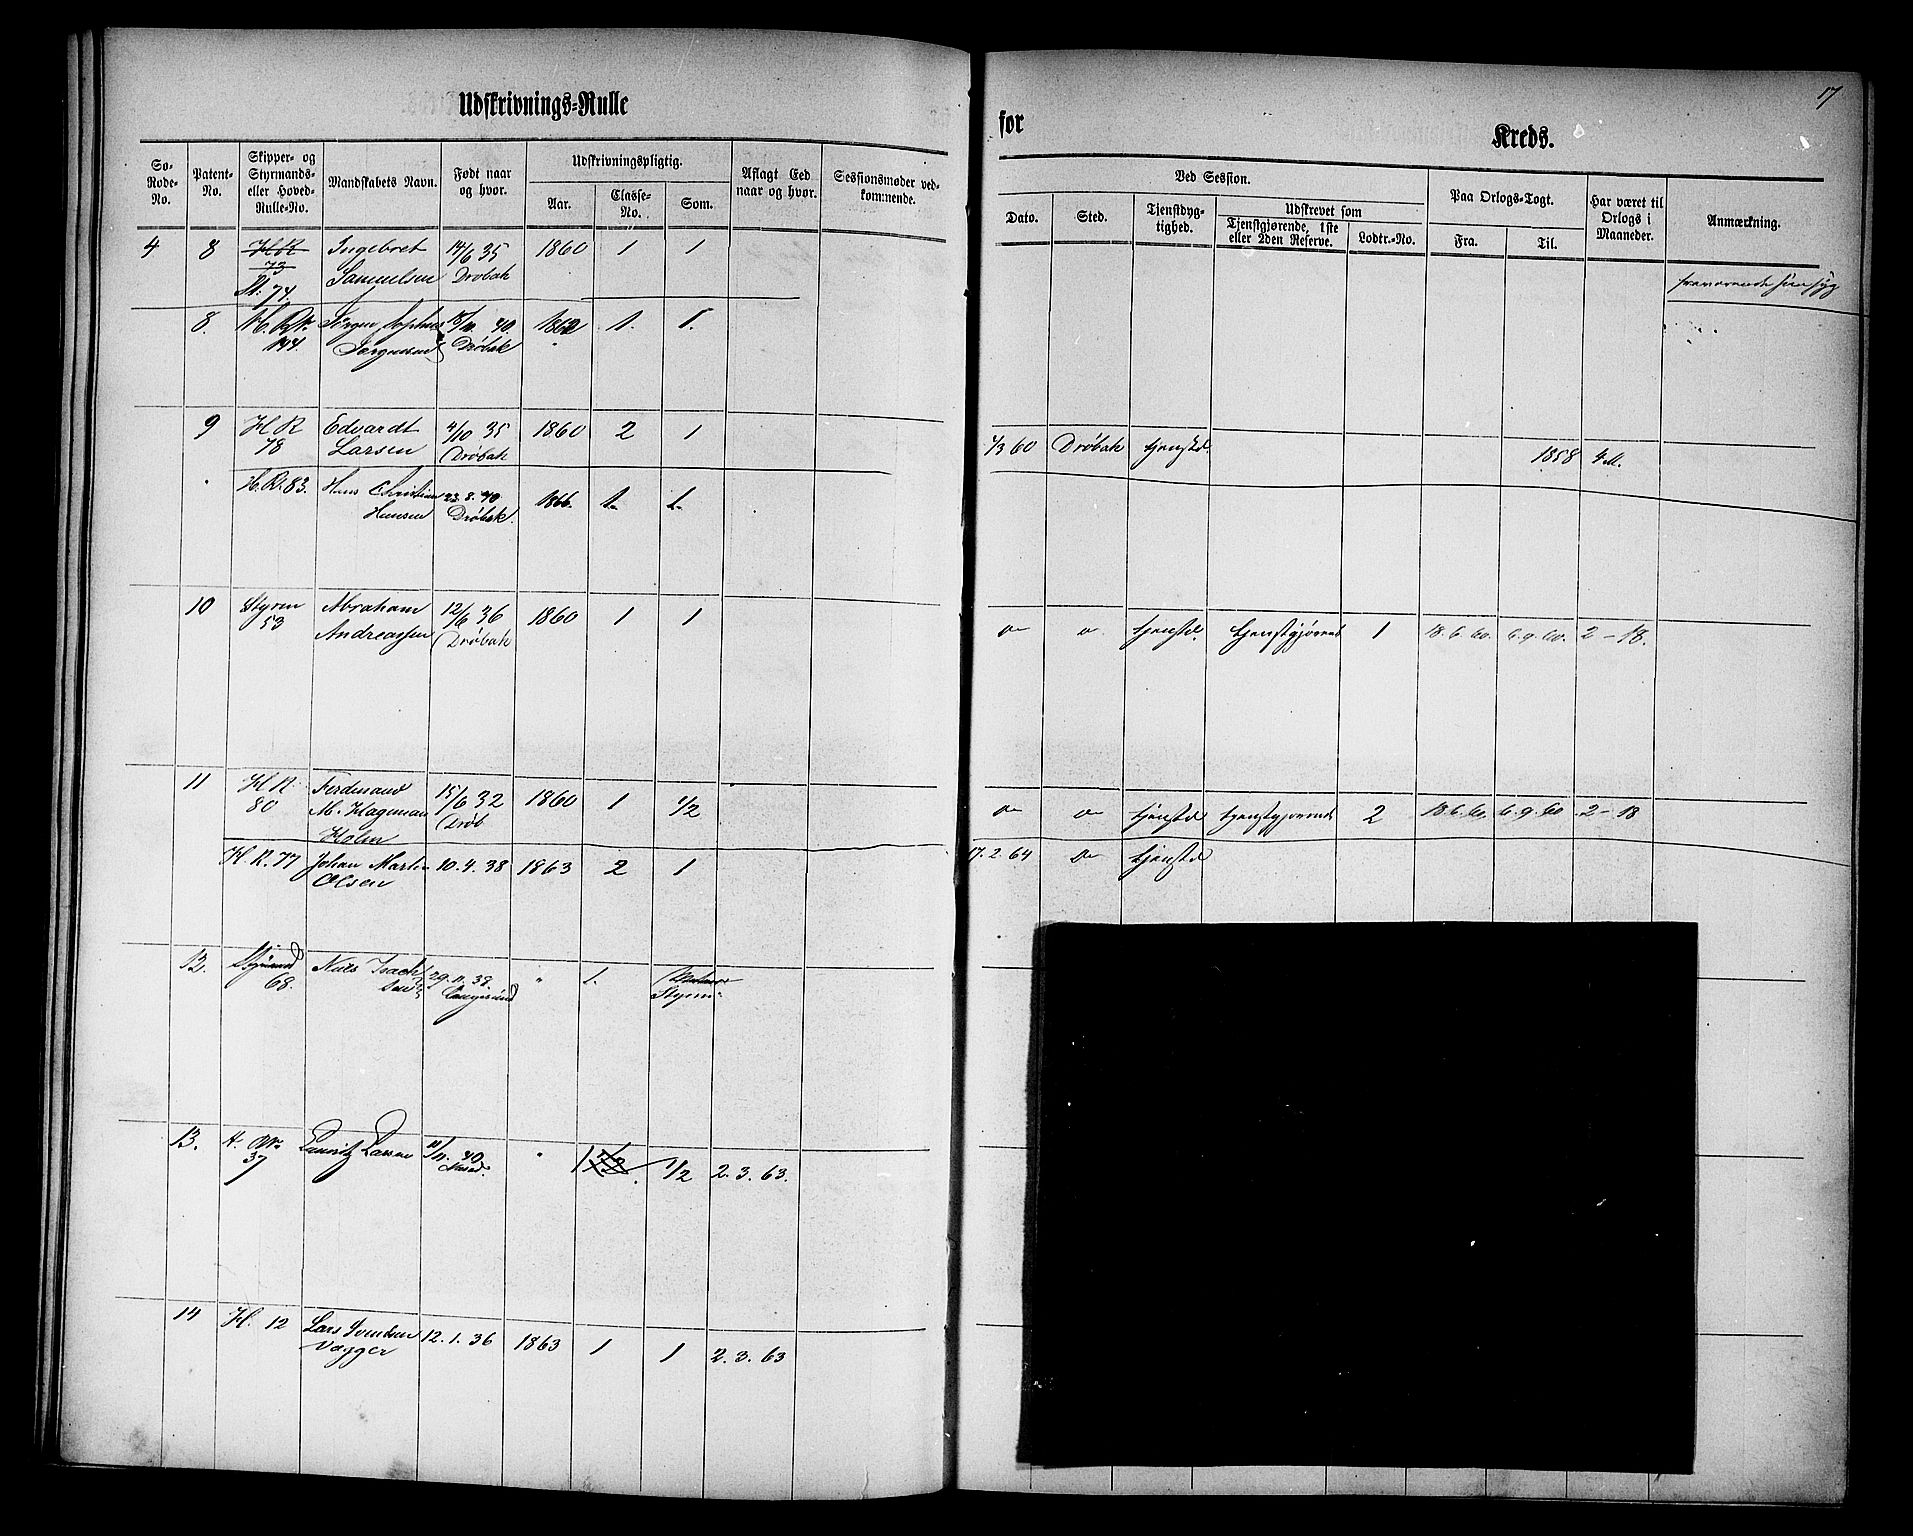 17
Udskrivnings-Rulle
for
Kreds.
Sø-Rode-No.
Patent-No.
Skipper- og Styrmands- eller Hoved-Rulle-No.
Mandskabets Navn.
Født naar og hvor.
Udskrivningspligtig.
Aar.
Classe-No.
Som.
Aflagt Eed naar og hvor.
Sessionsmøder vedkommende.
Ved Session.
Dato.
Sted.
Tjenstdygtighed.
Udskrevet som
Tjenstgjørende, 1ste eller 2den Reserve.
Lodtr.-No.
Paa Orlogs-Togt.
Fra.
Til.
Har været til Orlogs i Maaneder.
Anmærkning.
4 8 H R Ingebret 14/6 35 1860 1 1
73 Samuelsen Drøbak
St. 74.
8. H. R. Jørgen 40. 1862 1. 1.
144. Jørgensen Drøbak
9 H R Edvardt 4/10 35 1860 2 1
78 Larsen Drøbak
1/3 60 Drøbak tjenstd. 1858 4 M.
H. R. 83. Hans Christian 23. 8. 40 1866. 1. 1.
Hansen Drøbak.
10 Styrm Abraham 12/6 36 1860 1 1
53 Andreassen Drøbak
tjenstd. tjenstgjørend 1 18. 6. 60. 6. 9. 60. 2 - 18.
11 H R Ferdinand 15/6 32 1860 1 1/2
80 M. Hageman Drøb
Holm
tjenstd tjenstgjørende 2 18. 6. 60. 6. 9. 60 2 - 18
H. R. 77 Johan Martin 10. 4. 38 1863 2 1
Olsen
17. 2 64 tjenstd
12. Styrmd Niels Isach 29. 11. 38. " 1.
68. sen Langesund Styrm
13. H. 37 Larsen 11. 40. " 1 1/2 2. 3. 63.
14 H. 12 Lars Svendsen 12. 1. 36 1863 1 1 2. 3. 63
Vagger